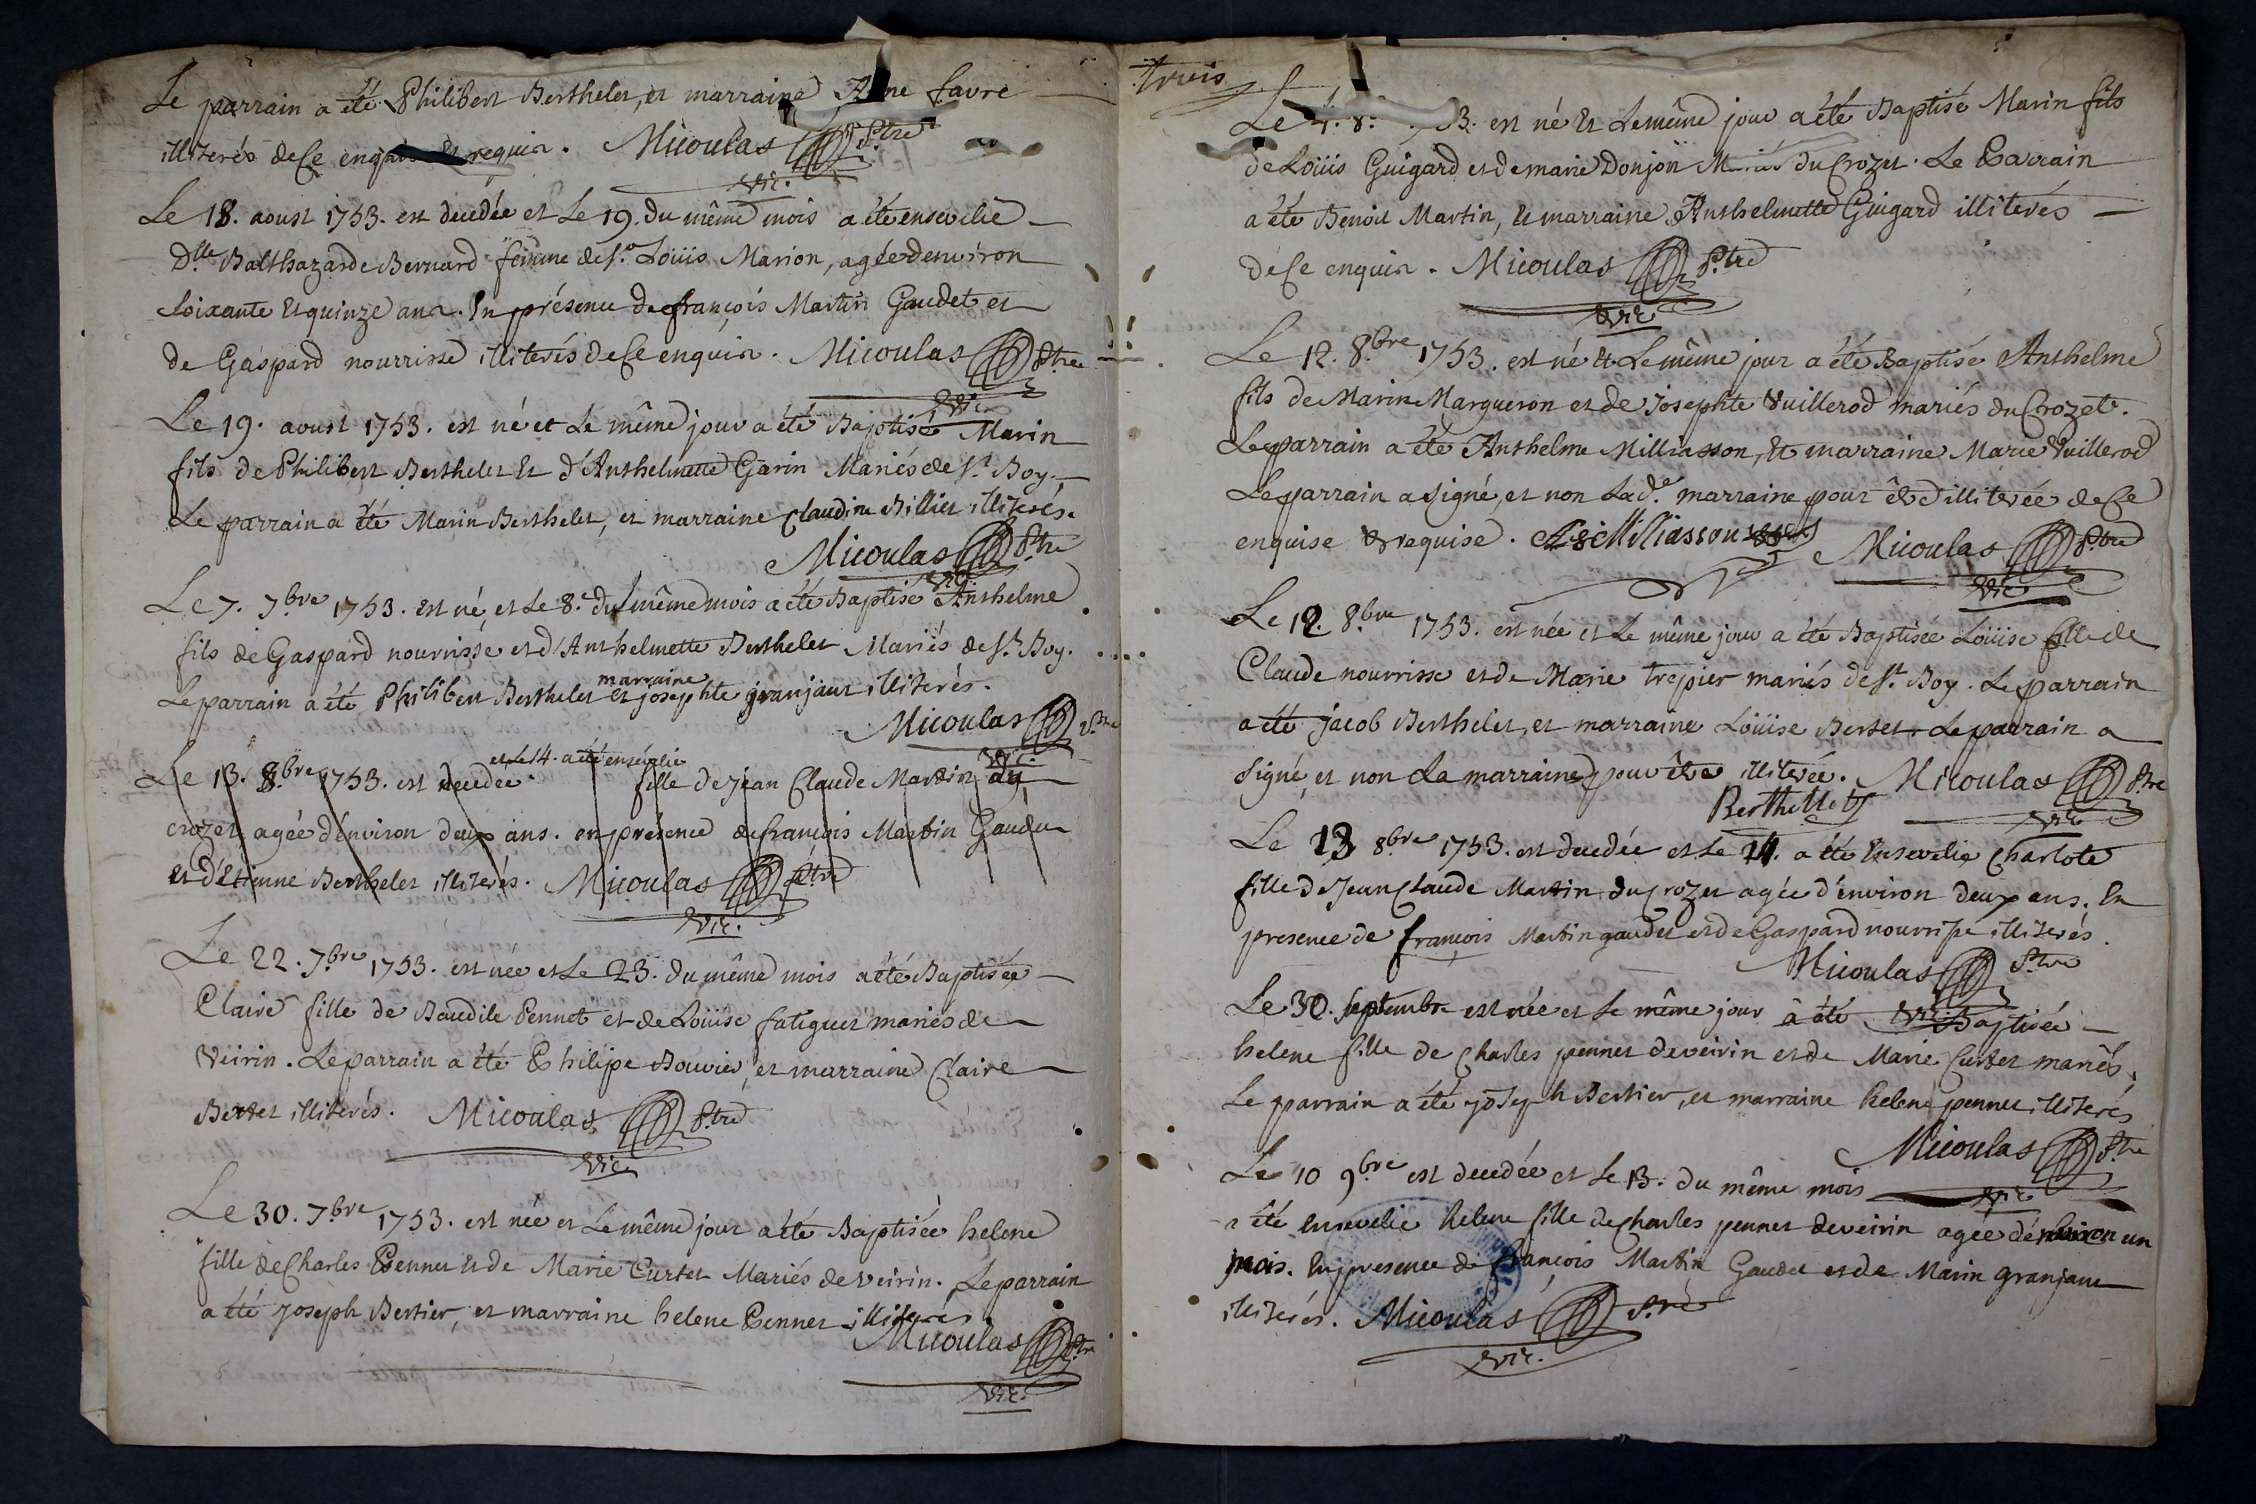 Le parrain a été Philibert Berthelet, et marraine Anne favre
illiterés de ce enquis et requis. Micoulas Ptre
vic.
Le 18. aoust 1753. est decedée et Le 19. du même mois a été ensevelie
Dlle Balthazarde Bernard femme de Sr. Loüis Marion, agée denviron
soixante et quinze ans. En présence de françois Martin Gaudet et
de Gaspard nourrisse illiterés de ce enquis. Micoulas Ptre
vic.
Le 19. aoust 1753. est né et Le même jour a été Baptisé Marin
fils de Philibert Berthelet et d'Anthelmette Garin Mariés de St. Boy.
Le parrain a été Marin Berthelet, et marraine Claudine Billiet illiterés.
Micoulas Ptre
vic.
Le 7. 7bre 1753. est né, et Le 8e. du même mois a été Baptisé Anthelme
fils de Gaspard nourrisse et d'Anthelmette Berthelet Mariés de St. Boy.
Le parrain a été Philibert Berthelet et marraine josephte granjant illiterés.
Micoulas Ptre
vic.
Le 13. 8bre 1753. est decedée et Le 14. a été ensevelie fille de jean Claude Martin du
crozet agée d'environ deux ans. en présence de françois Martin Gaudet
et d'Etienne Berthelet illiterés. Micoulas Ptre
vic.
Le 22. 7bre 1753. est née et Le 23. du même mois a été Baptisée
Claire fille de Baudile Pennet et de Loüise fatiguet mariés de
Veirin. Le parrain a été Philipe Bouvier, et marraine Claire
Bertet illiterés. Micoulas Ptre
vic.
Le 30. 7bre 1753. est née et Le même jour a été Baptisée helene
fille de Charles Pennet et de Marie Curtet Mariés de Veirin. Le parrain
a été joseph Bertier, et marraine helene Pennet illiterés.
Micoulas Ptre
vic.
trois
Le 8. 53. est né et Le même jour a été Baptisé Marin fils
de Loüis Guigard et de marie Donjon Mariés du Crozet. Le Parrain
a été Benoit Martin, et marraine Anthelmette Guigard illiterés
de ce enquis. Micoulas Ptre
vic
Le 12. 8bre 1753. est né et Le même jour a été Baptisé Anthelme
fils de Marin Margueron et de josephte Vuillerod mariés du Crozet.
Le parrain a été Anthelme Milliasson, et marraine Marie Vuillerod
Le parrain a signé, et non Lade. marraine pour être illiterée de ce
enquise et requise. Milliasson Micoulas Ptre
vic
Le 12. 8bre 1753. est née et Le même jour a été Baptisée Loüise fille de
Claude nourrisse et de Marie trepier mariés de St. Boy. Le parrain
a été jacob Berthelet, et marraine Loüise Bertet. Le parrain a
signé, et non La marraine pour être illiterée. Micoulas Ptre
Berthellet vic
Le 13 8bre 1753. est decedée et Le 14. a été Ensevelie Charlote
fille de Jean Claude Martin du Crozet agée d'environ deux ans. En
presence de françois Martin gaudet et de Gaspard nourrisse illiterés.
Micoulas Ptre
vic.
Le 30. septembre est née et Le même jour a été Baptisée
helene fille de Charles pennet de veirin et de Marie Curtet mariés,
Le parrain a été joseph Bertier, et marraine helene pennet illiterés
Micoulas Ptre
vic
Le 10 9bre est decedée et Le 13. du même mois
a été Ensevelie helene fille de Charles pennet de veirin agée d'environ un
mois. En presence de françois Martin Gaudet et de Marin granjant
illiterés. Micoulas Ptre
vic.